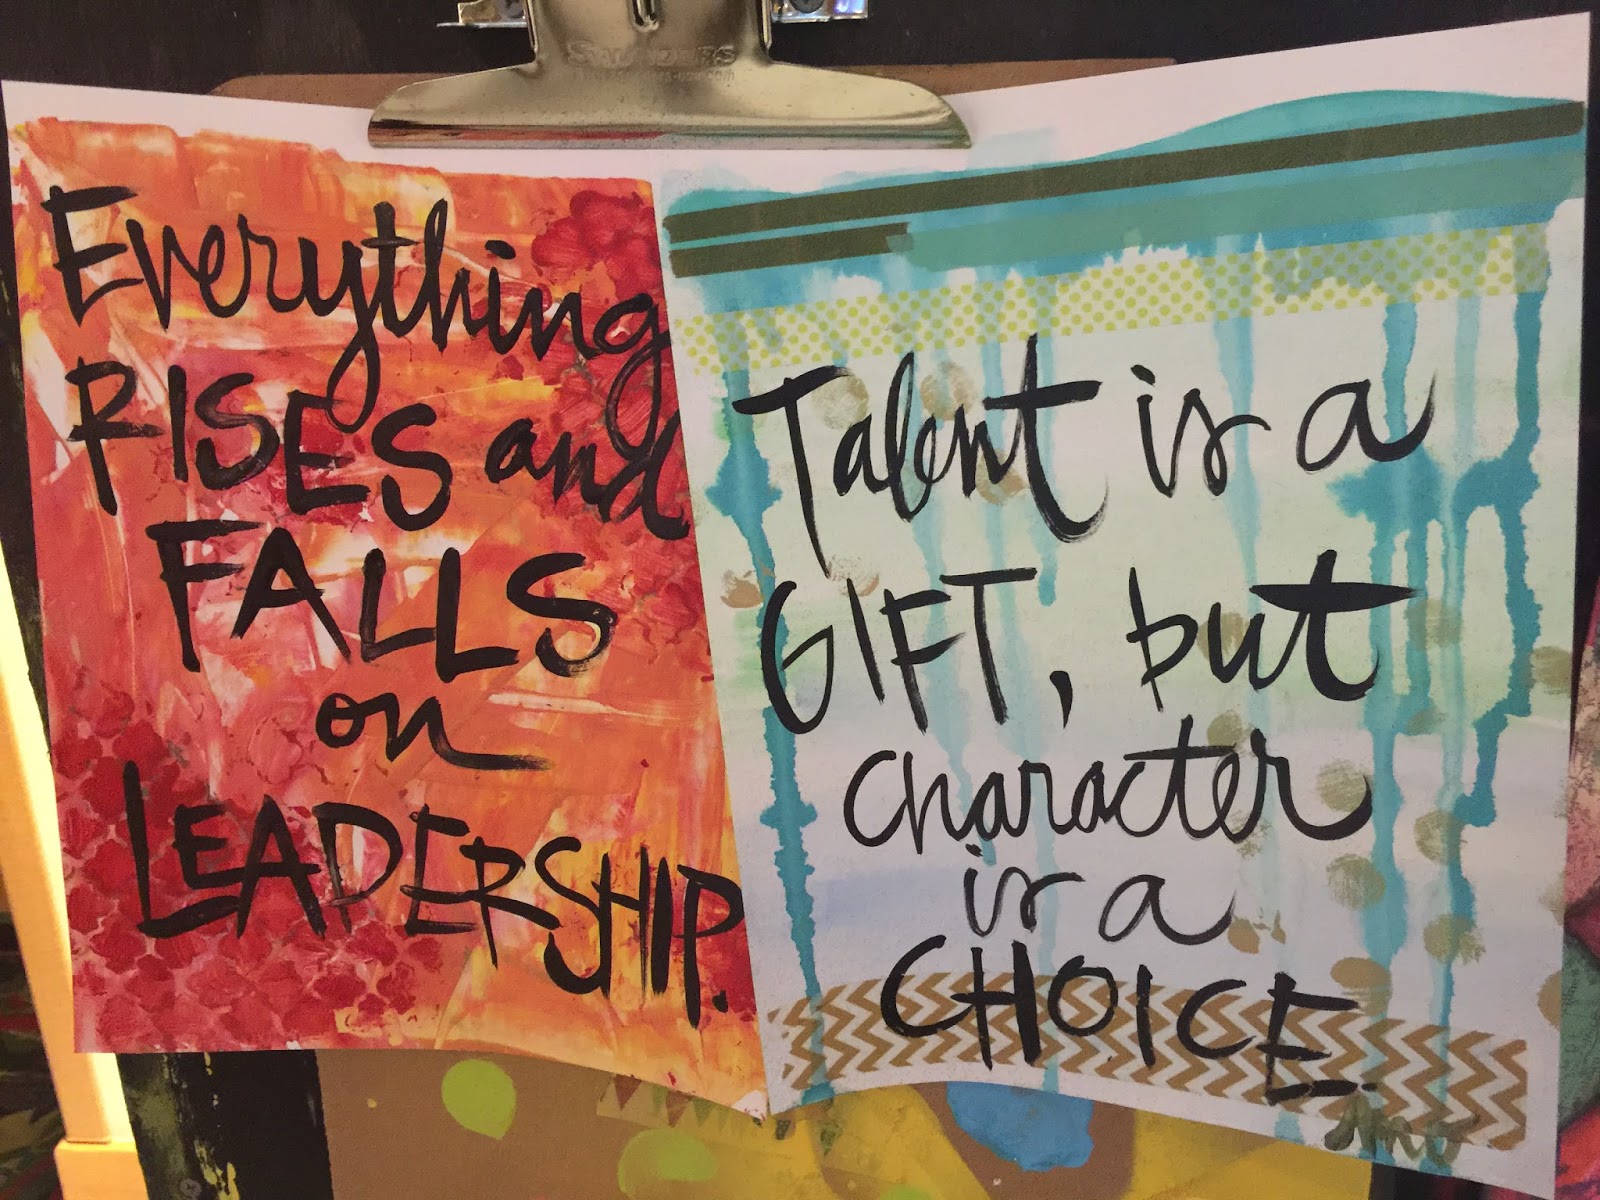 SAUNDERS
Everything
RISES and
FALLS
on
LEADERSHIP.
Talent is a
GIFT, but
character
is a
CHOICE.